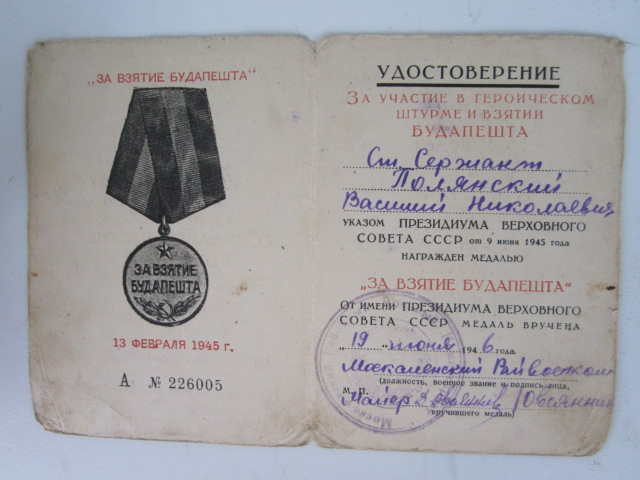 „ЗА ВЗЯТИЕ БУДАПЕШТА“
ЗА ВЗЯТИЕ
БУДАПЕШТА
13 ФЕВРАЛЯ 1945 г.
А № 226005
УДОСТОВЕРЕНИЕ
ЗА УЧАСТИЕ В ГЕРОИЧЕСКОМ
ШТУРМЕ И ВЗЯТИИ
БУДАПЕШТА
Ст. Сержант
Полянский
Василий Николаевич
УКАЗОМ ПРЕЗИДИУМА ВЕРХОВНОГО
СОВЕТА СССР от 9 июня 1945 года
НАГРАЖДЕН МЕДАЛЬЮ
„ЗА ВЗЯТИЕ БУДАПЕШТА“
ОТ ИМЕНИ ПРЕЗИДИУМА ВЕРХОВНОГО
СОВЕТА СССР МЕДАЛЬ ВРУЧЕНА
„19“ июня 1946 года.
Москаленский Райвоенком
(должность, военное звание и подпись лица,
М. П.
Майор
вручившего медаль)